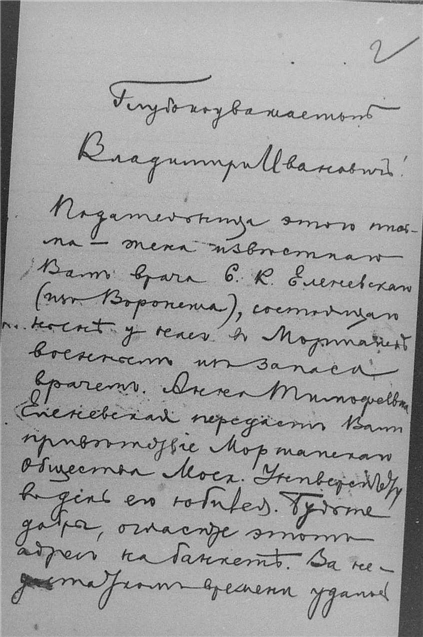 2
Глубокоуважаемый
Владимир Иванович!
Подательница этого пись-
ма – жена известнаго
Вамъ врача Е. К. Еленевскаго
(изъ Воронежа), состоящаго
нынѣ у насъ в Моршанскѣ
военнымъ изъ запаса
врачемъ. Анна Тимофеевна
Еленевская передастъ Вамъ
привѣтствіе Моршанскаго
Общества Моск. Университету
въ день его юбилея. Будьте
добры, огласите этотъ
адресъ на банкетѣ. За не-
достаткомъ времени удалось